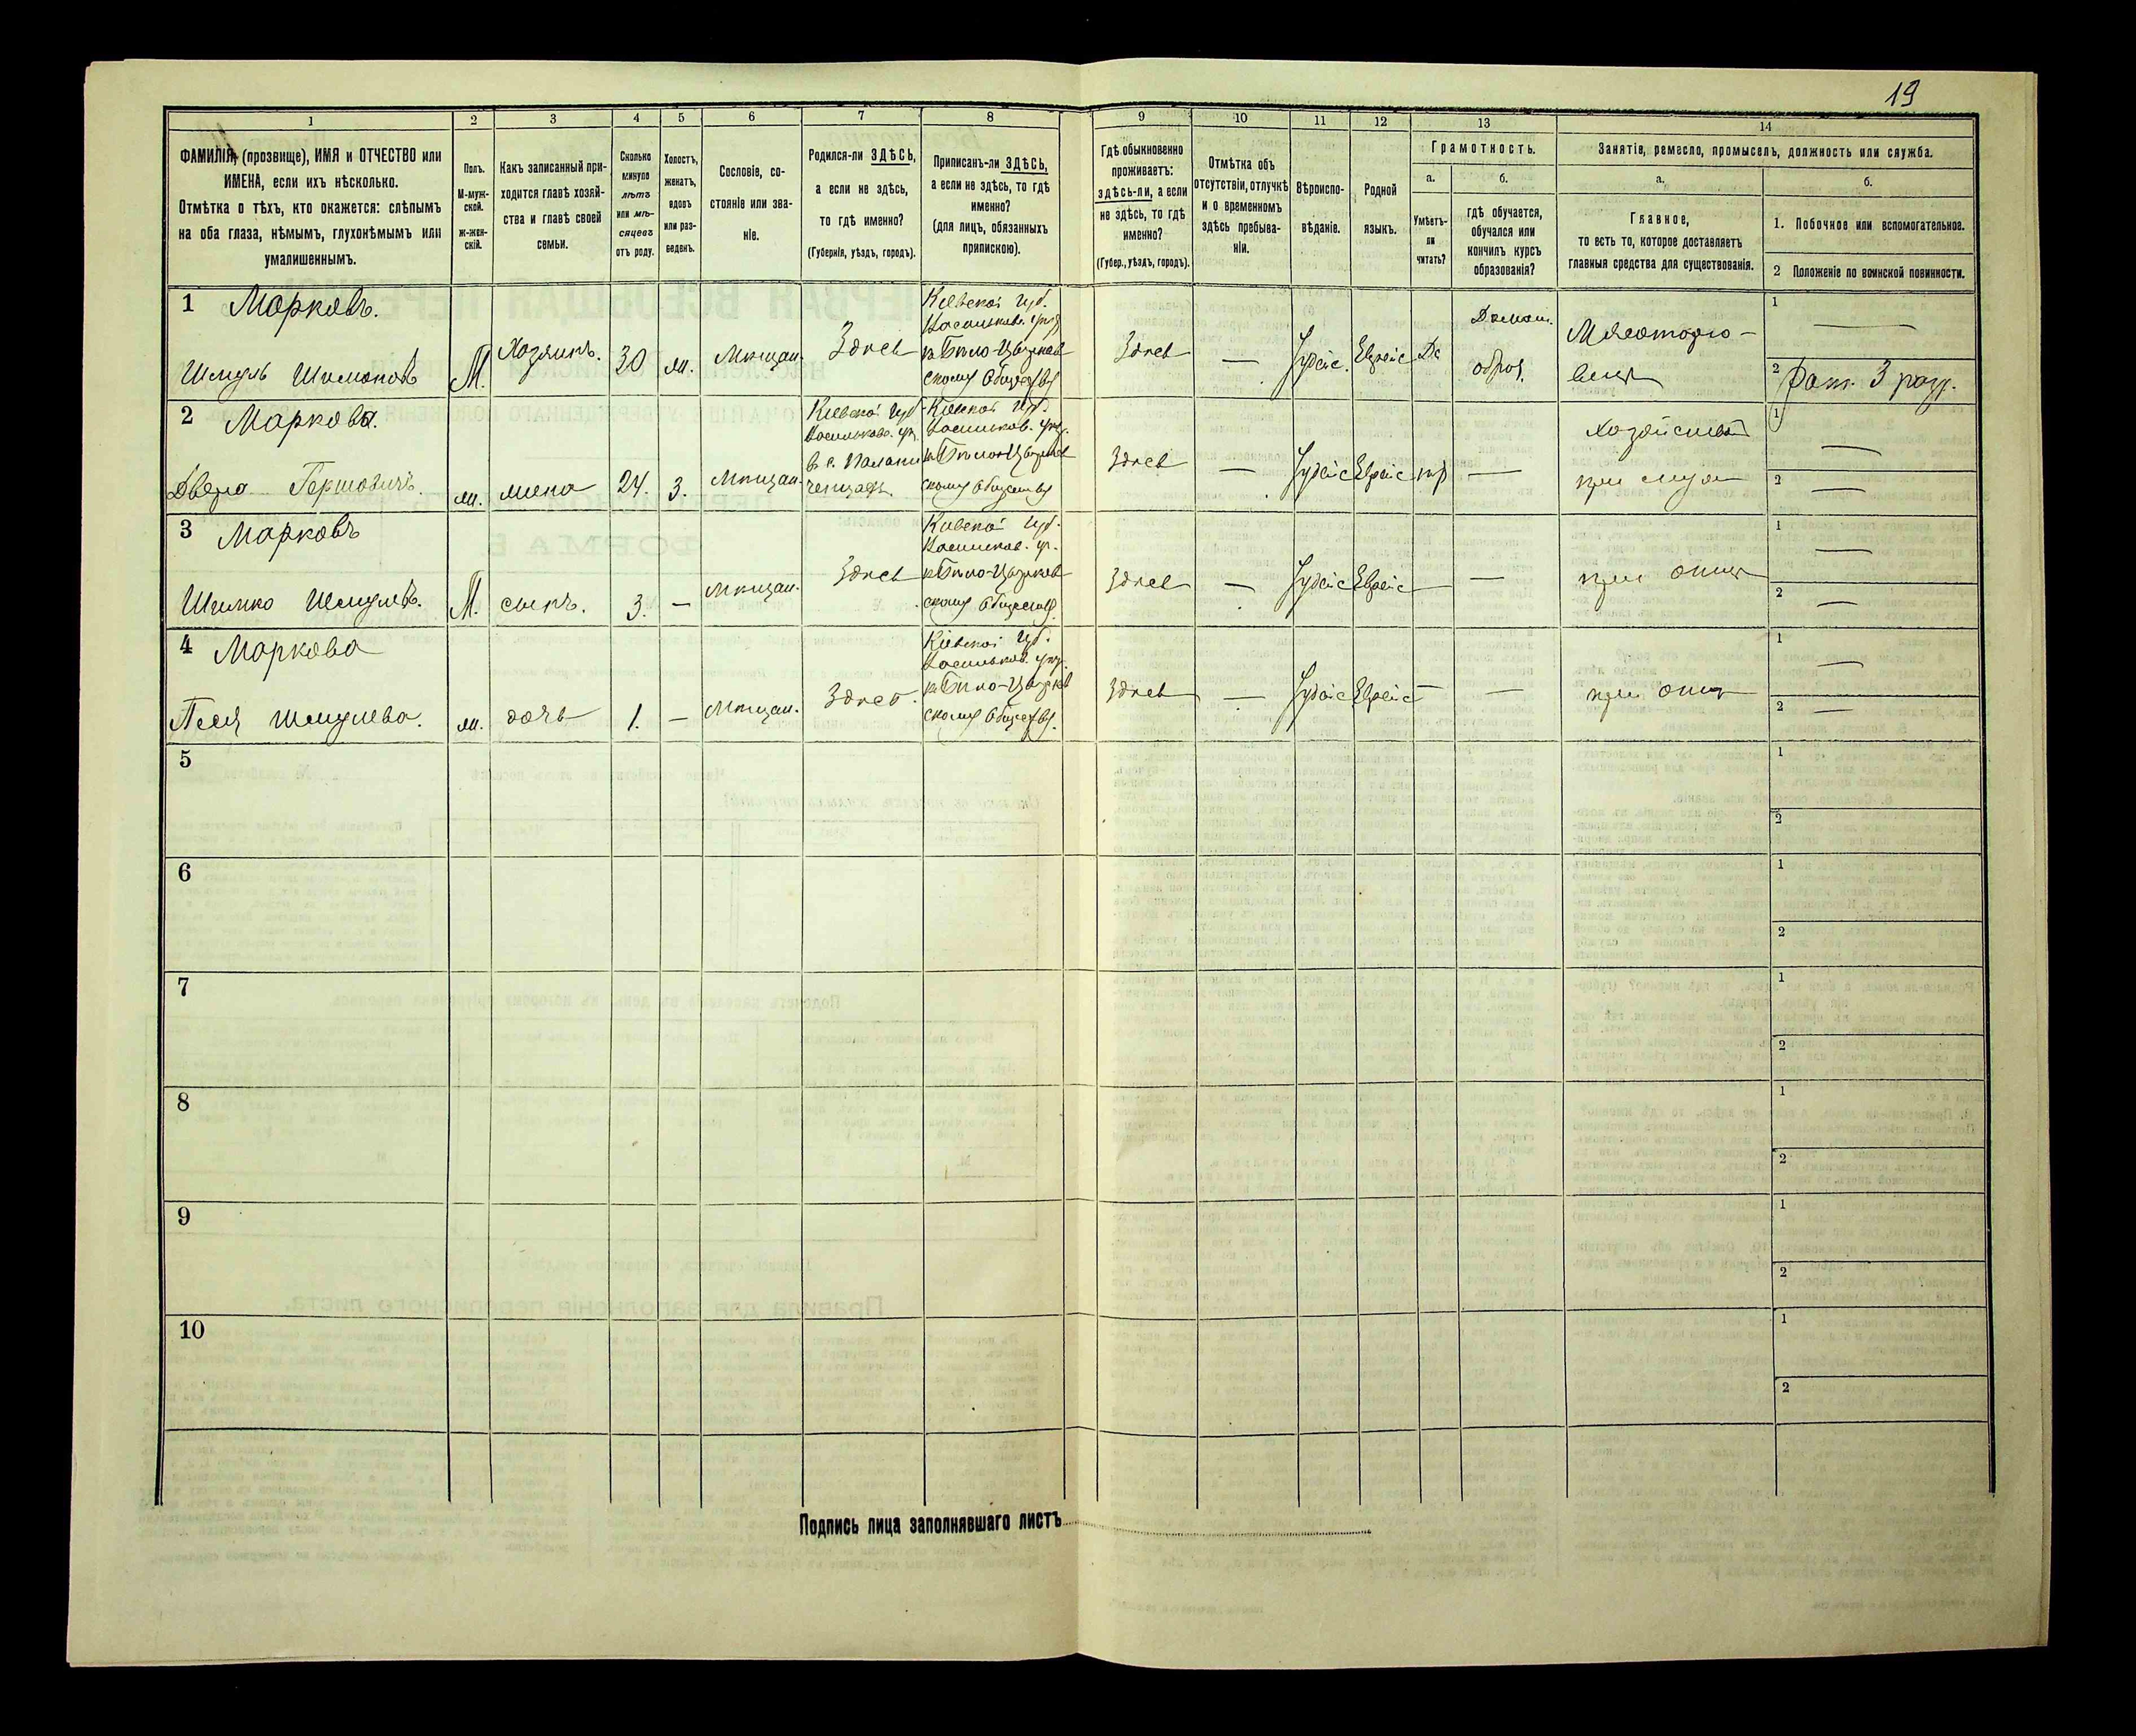 19
1
2
3
4
5
6
7
8
9
10
11
12
13
14
ФАМИЛІЯ, (прозвище), ИМЯ и ОТЧЕСТВО или
ИМЕНА, если ихъ нѣсколько.
Отмѣтка о тѣхъ, кто окажется: слѣпымъ
на оба глаза, нѣмымъ, глухонѣмымъ или
умалишеннымъ.
Полъ.
М-муж-
ской.
ж-жен-
скій.
Какъ записанный при-
ходится главѣ хозяй-
ства и главѣ своей
семьи.
Сколько
минуло
лѣтъ
или мѣ-
сяцевъ
отъ роду.
Холостъ,
женатъ,
вдовъ
или раз-
веденъ.
Сословіе, со-
стояніе или зва-
ніе.
Родился-ли ЗДѢСЬ,
а если не здѣсь,
то гдѣ именно?
(Губернія, уѣздъ, городъ).
Приписанъ-ли ЗДѢСЬ,
а если не здѣсь, то гдѣ
именно?
(для лицъ, обязанныхъ
припискою).
Гдѣ обыкновенно
проживаетъ:
здѣсь-ли, а если
не здѣсь, то гдѣ
именно?
(Губер., уѣздъ, городъ).
Отмѣтка объ
отсутствіи, отлучкѣ
и о временномъ
здѣсь пребыва-
ніи.
Вѣроиспо-
вѣданіе.
Родной
языкъ.
Грамотность.
а.
Умѣетъ-
ли
читать?
б.
гдѣ обучается,
обучался или
кончилъ курсъ
образованія?
Занятіе, ремесло, промыселъ, должность или служба.
а.
Главное,
то есть то, которое доставляетъ
главныя средства для существованія.
б.
1. Побочное или вспомогательное.
2 Положеніе по воинской повинности.
1 Марковъ.
Шмуль Шимоновъ
М.
Хозяинъ.
30
ж.
Мѣщан.
Здѣсь
Кіевской губ.
Васильков. уѣзд
къ Бѣло-Церков
скому Обществу
Здѣсь
—
Іудейс.
Еврейс
Да
Домаш.
образ.
Мясоторго-
вецъ
1
2
3 разр.
2 Маркова.
Двера
ж.
жена
24.
З.
Мѣщан.
Кіевской губ
Васильков. уѣ.
Кіевской губ.
Васильков. уѣзд.
къ Бѣло-Церков
скому Обществу
Здѣсь
—
Іудейс
Еврейс
—
Хозяйствой
при мужѣ
1
2
3 Марковъ
Шимко Шмулев.
М.
сынъ.
3.
—
Мѣщан.
Здѣсь
Кіевской губ.
Васильков. уѣ.
къ Бѣло-Церков
скому Обществу.
Здѣсь
—
Іудейс
Еврейс
—
—
при отцѣ
1
2
4 Маркова
Песя Шмулева.
ж.
дочь
1.
—
Мѣщан.
Здѣсь.
Кіевской губ.
Васильков. уѣзд.
къ Бѣло-Церков
скому Обществу.
Здѣсь
—
Іудейс
Еврейс
—
—
при отцѣ
1
2
5
1
2
6
1
2
7
1
2
8
1
2
9
1
2
10
1
2
Подпись лица заполнявшаго листъ